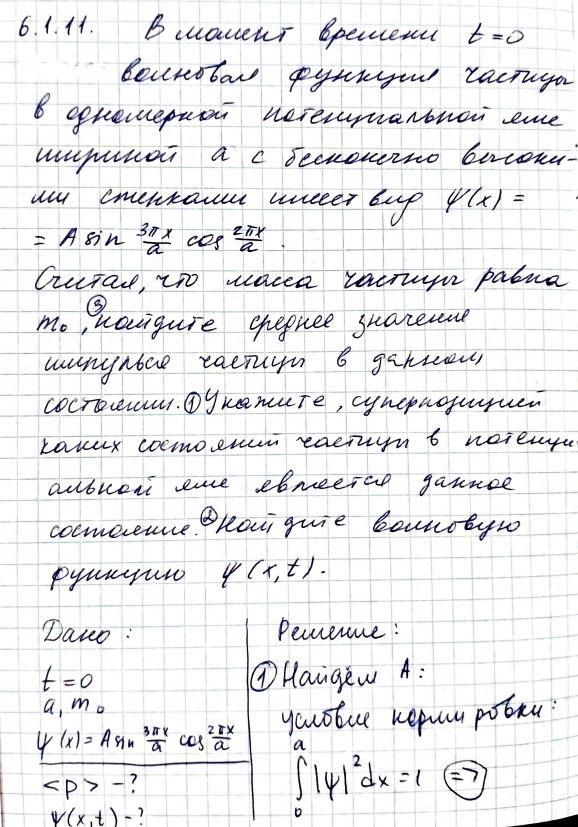 6.1.11. В момент времени t=0
волновая функция частицы
в одномерной потенциальной яме
шириной a с бесконечно высоки-
ми стенками имеет вид ψ(x) =
= A sin 3πx/a cos 2πx/a .
Считая, что масса частицы равна
m₀, ③ найдите среднее значение
импульса частицы в данном
состоянии. ① Укажите, суперпозицией
каких состояний частицы в потенци-
альной яме является данное
состояние. ② Найдите волновую
функцию ψ(x,t).
Дано:
t=0
a, m₀
ψ(x) = A sin 3πx/a cos 2πx/a
<p> - ?
ψ(x,t) - ?
Решение:
① Найдём A:
условие нормировки:
∫₀ᵃ |ψ|² dx = 1 ⇒